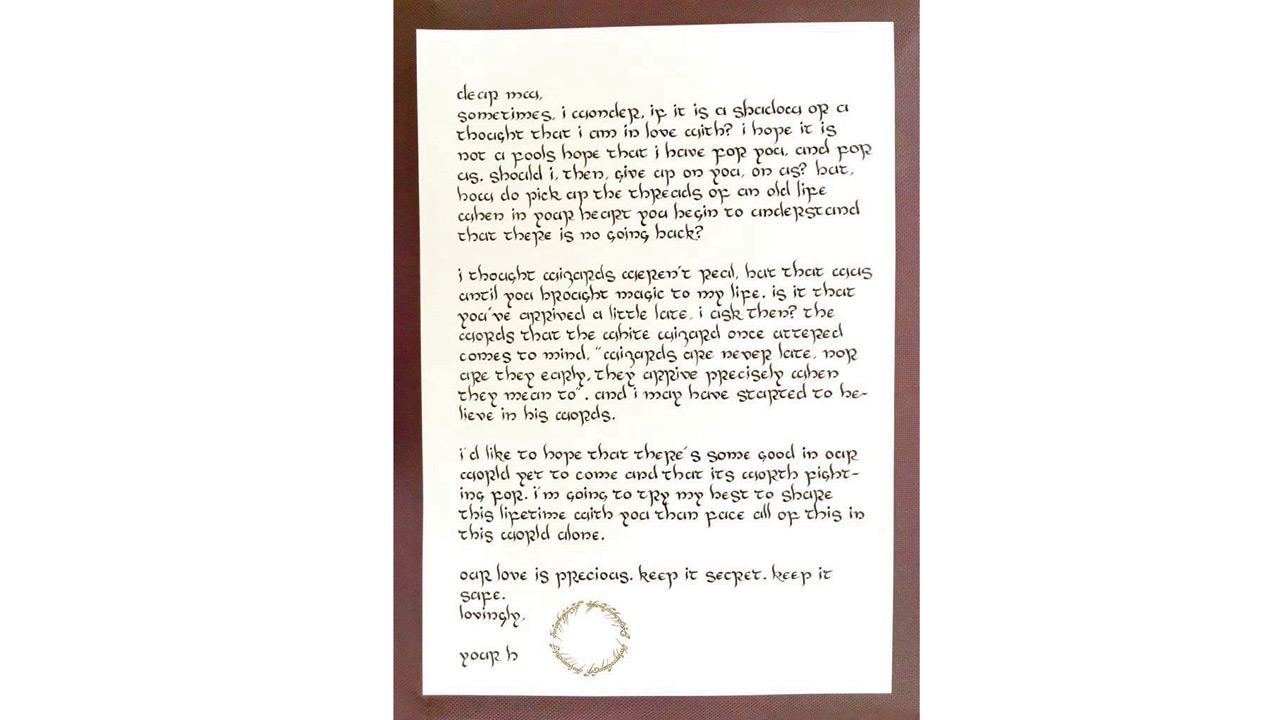 dear mw,
sometimes, i wonder, if it is a shadow or a
thought that i am in love with? i hope it is
not a fools hope that i have for you, and for
us. should i, then, give up on you, on us? but,
how do pick up the threads of an old life
when in your heart you begin to understand
that there is no going back?
i thought wizards weren't real, but that was
until you brought magic to my life. is it that
you've arrived a little late, i ask then? the
words that the white wizard once uttered
comes to mind, "wizards are never late, nor
are they early, they arrive precisely when
they mean to". and i may have started to be-
lieve in his words.
i'd like to hope that there's some good in our
world yet to come and that its worth fight-
ing for. i'm going to try my best to share
this lifetime with you than face all of this in
this world alone.
our love is precious. keep it secret. keep it
safe.
lovingly,
your h